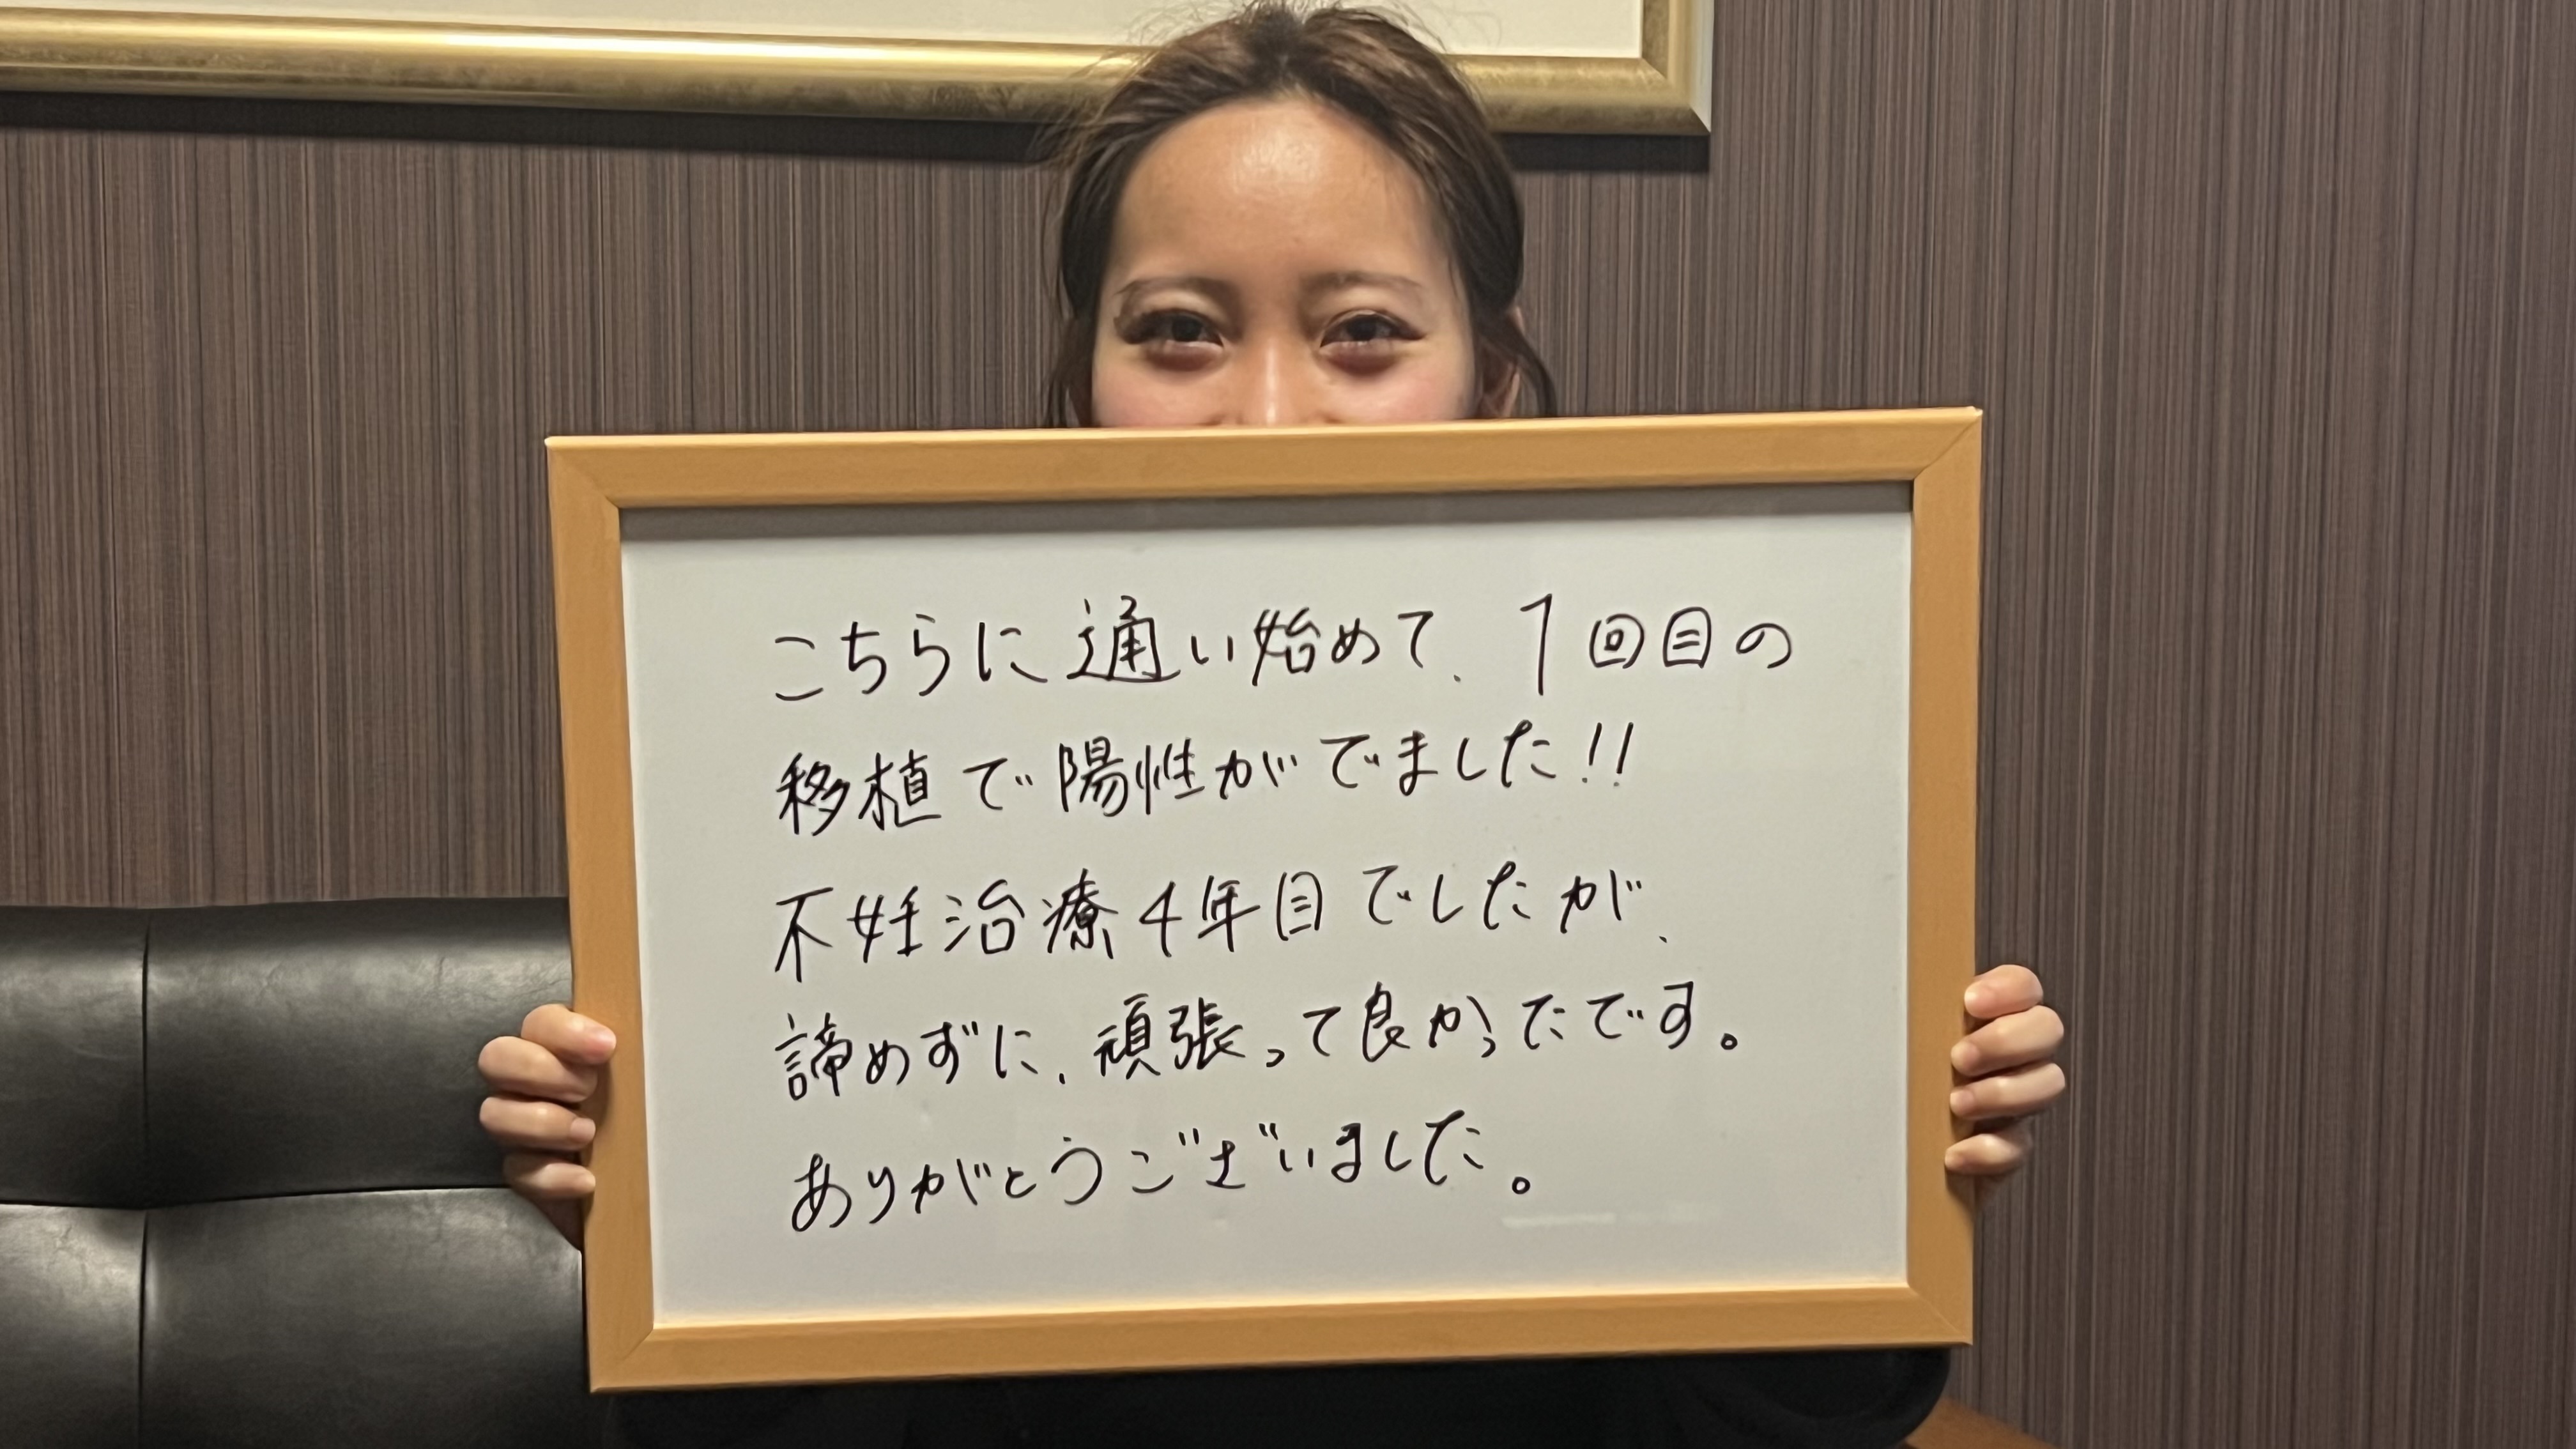 こちらに通い始めて、1回目の
移植で陽性がでました!!
不妊治療4年目でしたが、
諦めずに、頑張って良かったです。
ありがとうございました。